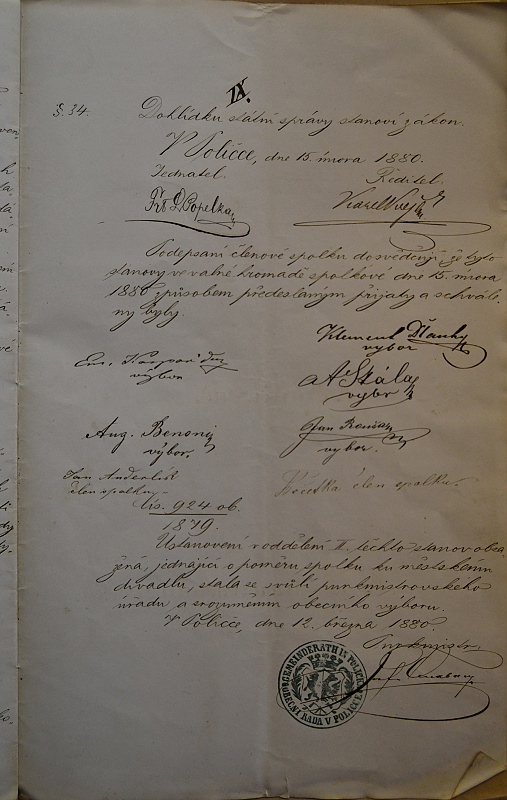 IX.
§. 34.
Dohlídku státní správy stanoví zákon.
V Poličce, dne 15. února 1880.
Jednatel. Ředitel.
Popelka
Podepsaní členové spolku dosvědčují že tyto
stanovy ve valné hromadě spolkové dne 15. února
1880 způsobem předeslaným přijaty a schvále-
ny byly.
Klement
výbor
výbor
A Skála
výbor
Aug. Benoni
výbor.
Jan
výbor.
Jan Anderlik
člen spolku
člen spolku.
čís. 924 ob.
1879.
Ustanovení v oddělení II. těchto stanov obsa-
žená, jednající o poměru spolku ku městskému
divadlu, stala se svolí purkmistrovského
úřadu a srozuměním obecního výboru.
V Poličce, dne 12. března 1880
Purkmistr
GEMEINDERATH IN POLIČKA
OBECNÍ RADA V POLIČCE